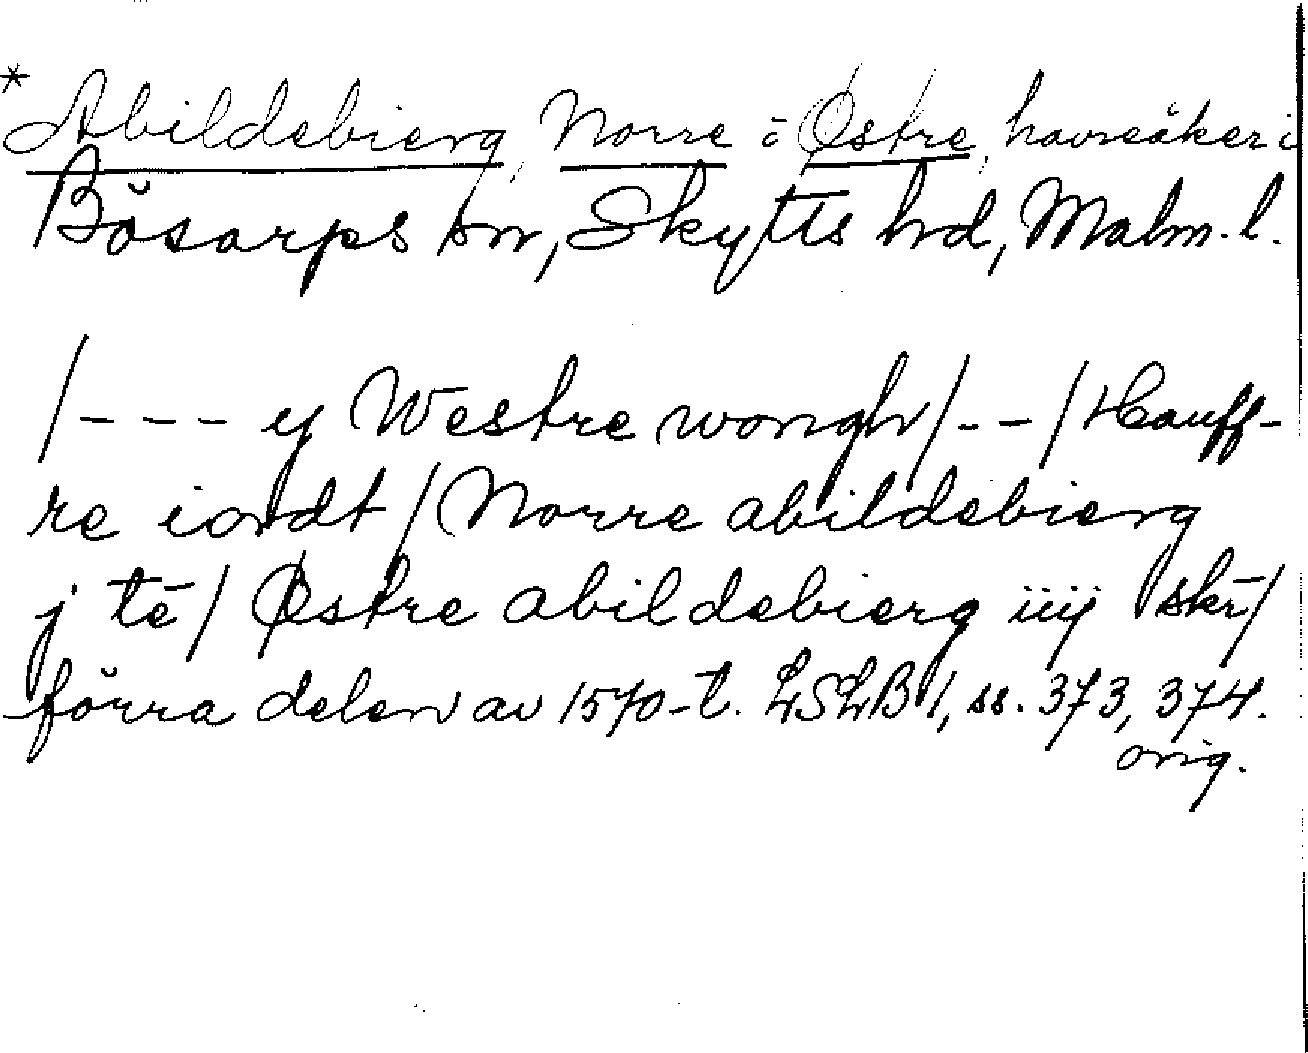 * Abildebierg, Norre o Østre, havreåker i
Bösarps sn, Skytts hd, Malm. l.
/--- y Westre wongh/--/Hauff-
re iordt/Norre abildebierg
j tē/Østre abildebierg iiij skr̄/
förra delen av 1570-t. LSLB 1, ss. 373, 374.
orig.